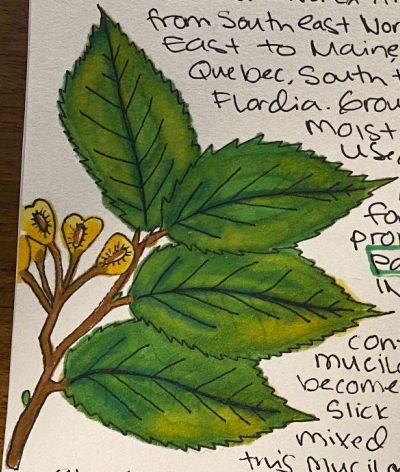 from Southeast Nor
East to Maine,
Quebec, South t
Flordia. Grou
Moist
use
fo
pro
ea
in
cont
mucila
become
Slick
mixed
this mucila